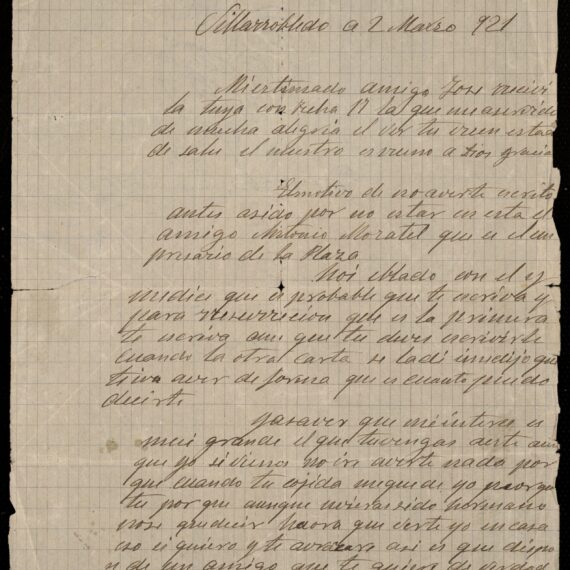 Villarrobledo a 2 Marzo 921
Mi estimado amigo Jose recivi
la tuya con fecha 17 la que me a servido
de mucha alegria el ver tu vuen estado
de salu el nuestro es vueno a Dios gracias
El motivo de no averte escrito
antes a sido por no estar en esta el
amigo Antonio Moratel que es el em
presario de la Plaza
Nos ablado con el y
me dice que es probable que te escriva y
para resurricion que es la primera
te escriva aun que tu deves escrivirle
cuando la otra carta se la di me dijo que
iva aver de forma que es cuanto puedo
decirte
ya saver que me interes es
mui grande el que tu vengas aerte aun
que yo si vienes no ire averte nada por
que cuando tu cojida me quede yo peor que
tu por que aunque uvieras sido hermano
no se que decir haora que verte yo en casa
eso si quiero y te avrazare asi es que dispon
de un amigo que te quiere de verdad